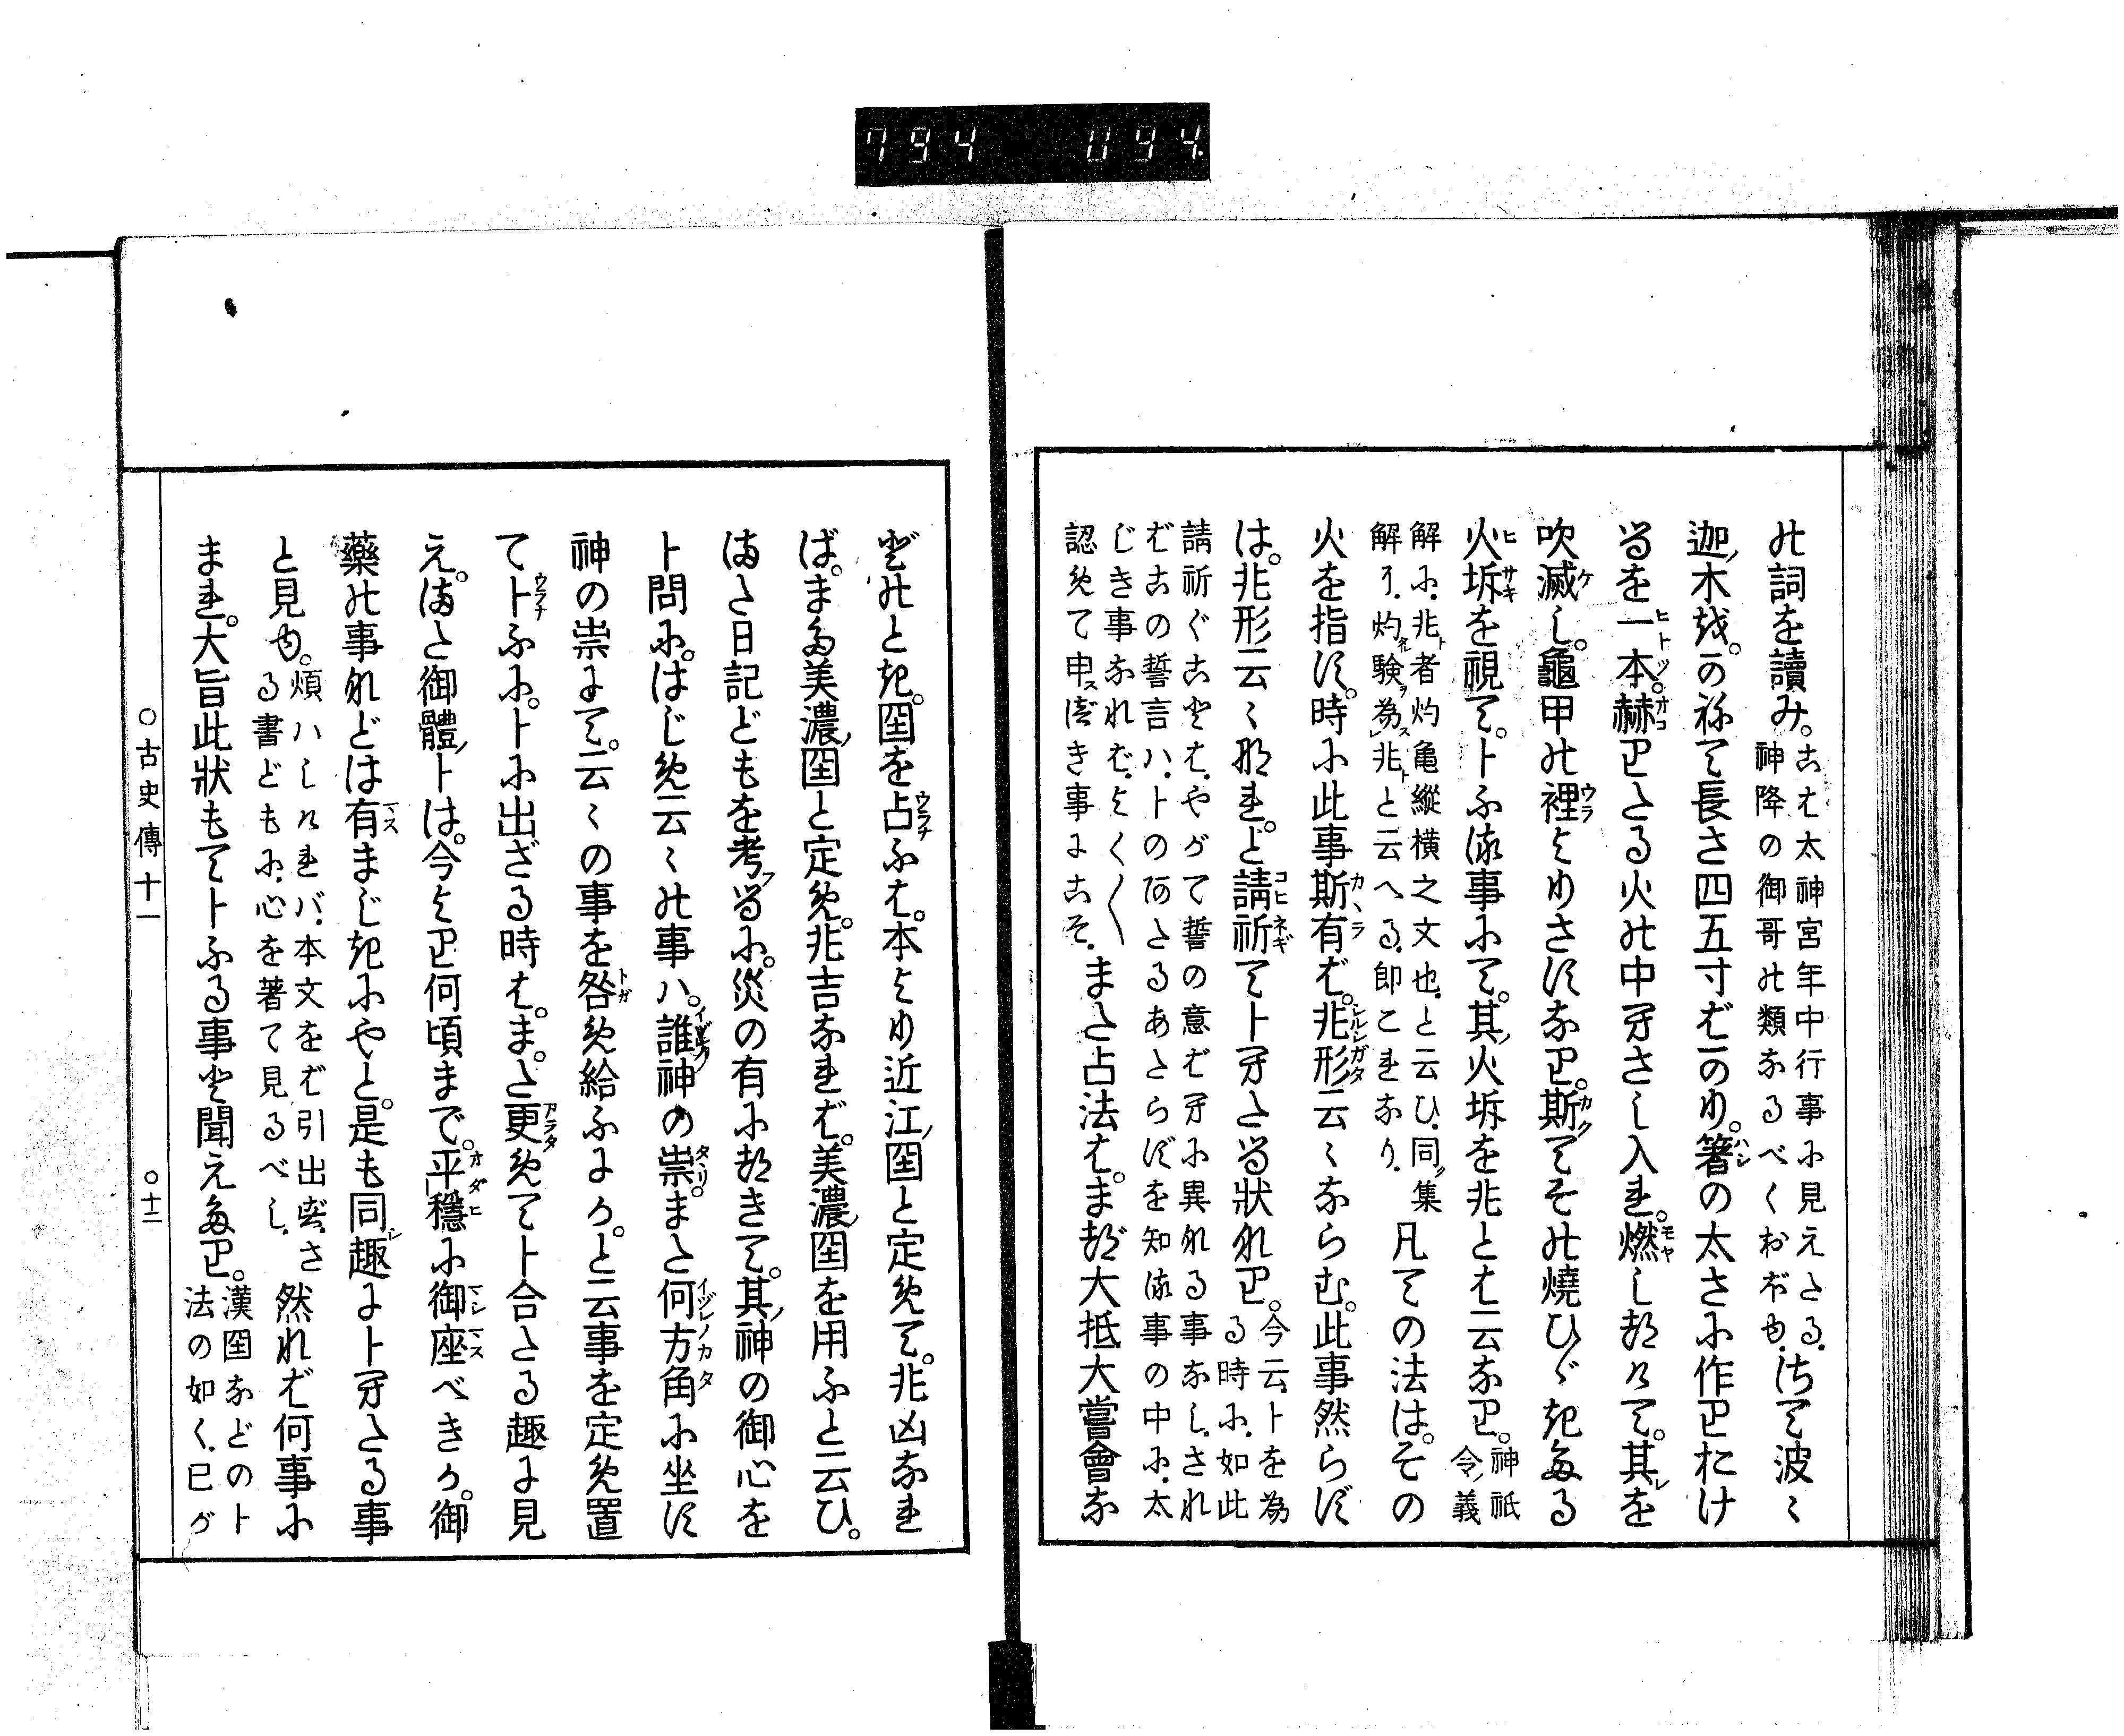 794 094
の詞を讀み。こは太神宮年中行事に見えたる。
神降の御哥の類なるべくおぼゆ。さて波々
迦ノ木を。かねて長さ四五寸ばかり。箸の太さに作りおけ
るを一本。赫りたる火の中にさし入れ。燃しつけて。其を
吹滅し。龜甲の裡よりさすなり。斯てその燒ひゞきたる
火坼を視て。卜ふる事にて。其ノ火坼を兆とは云なり。神祇
令ノ義
解に。兆者灼亀縱横之文也。と云ひ。同ジ集
解ニ。灼験為兆と云へる。即これなり。凡ての法は。その
火を指す。時に此事斯有ば。兆形云々ならむ。此事然らず
は。兆形云々なれ。と請祈て卜ふる狀なり。今云。卜を為
る時に。如此
請祈ぐことは。やがて誓の意ばへに異れる事なし。され
ばこの誓言ハ。卜の何たるあたらずを知る事の中に。太
じき事なれば。よく〱
認めて申すべき事にこそ。また占法は。まづ大抵大嘗會な
どのとき。国を占ふは。本より近江ノ国と定めて。兆凶なれ
ば。また美濃ノ国と定め。兆吉なれば。美濃ノ国を用ふと云ひ。
また日記どもを考ふるに。災の有につきて。其ノ神の御心を
卜問に。はじめ云々の事ハ。誰神の祟。また何方角に坐す
神の祟にて。云々の事を咎め給ふにか。と云事を定め置
て卜ふに。卜に出ざる時は。また更めて卜合たる趣に見
え。また御體ノ卜は。今より何頃まで。平穩に御座べきか。御
藥の事などは有まじきにやと。是も同趣に卜へたる事
と見ゆ。煩ハしければ。本文をば引出ず。さ
る書どもに。心を著て見るべし。然れば何事に
まれ。大旨此狀もて卜ふる事と聞えたり。漢国などの卜
法の如く。巳が
○古史傳十一 ○十二